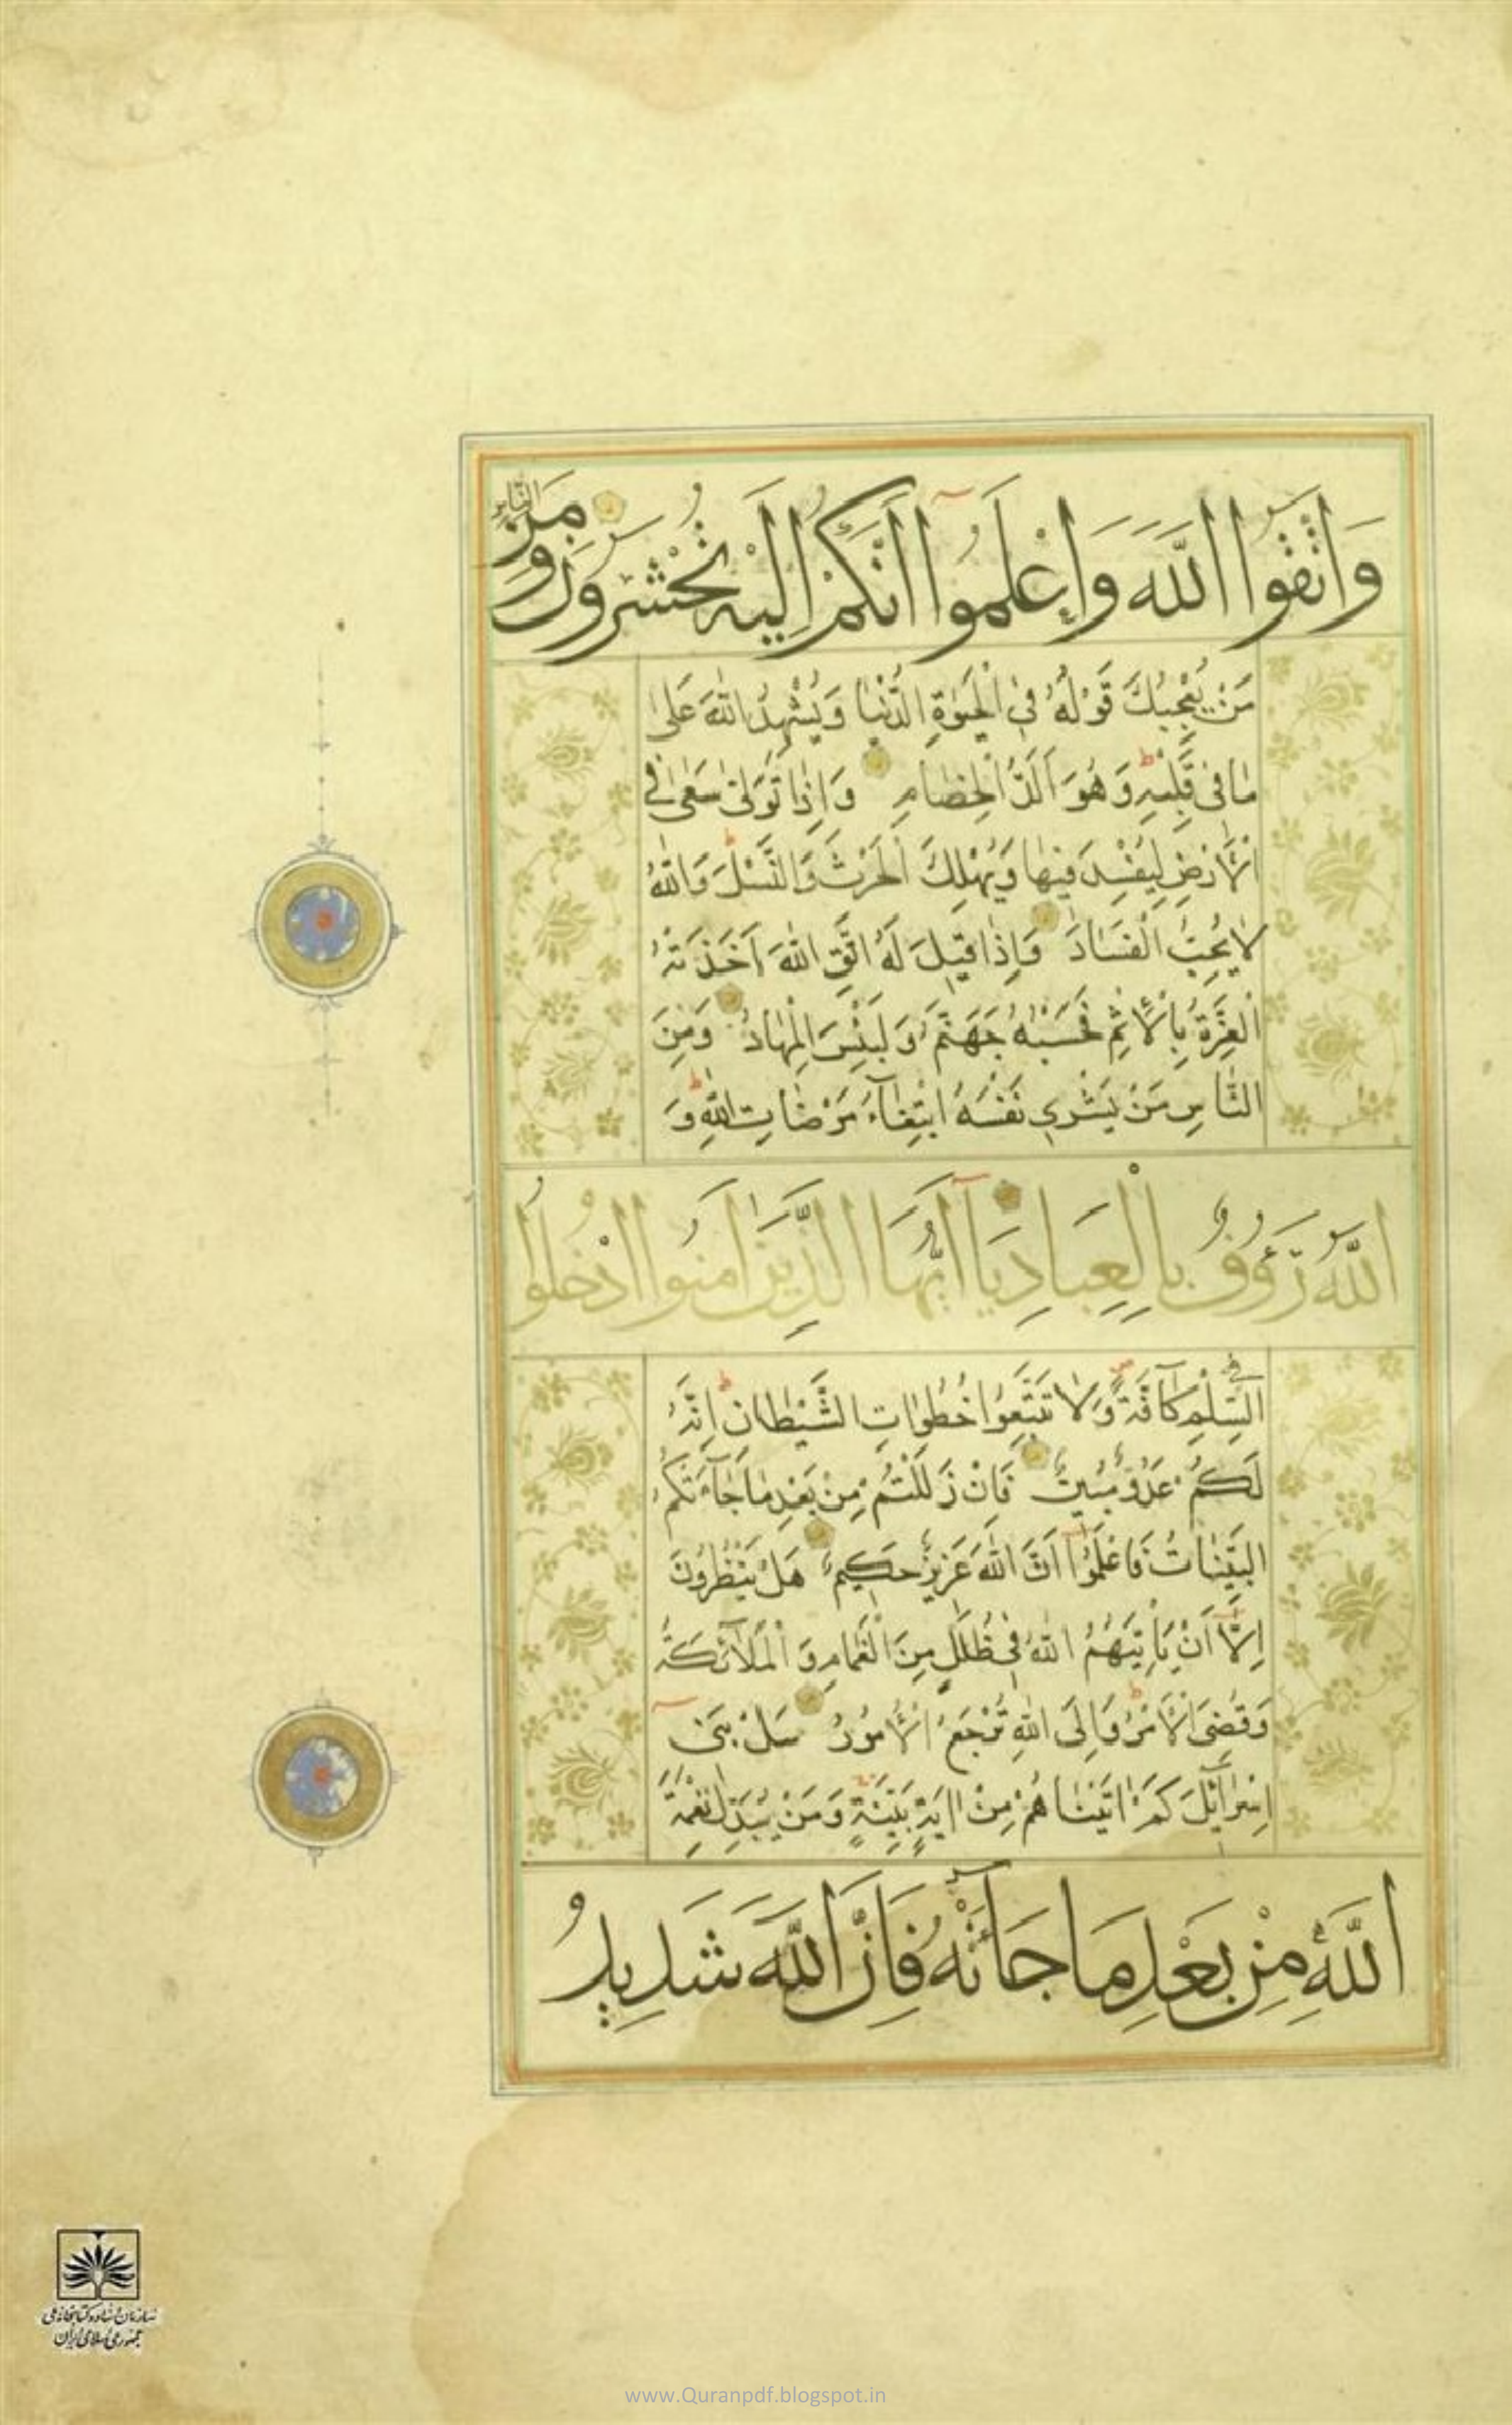 وَاتَّقُوا اللَّهَ وَاعْلَمُوا أَنَّكُمْ إِلَيْهِ تُحْشَرُونَ وَمِنَ النَّاسِ
مَنْ يُعْجِبُكَ قَوْلُهُ فِي الْحَيٰوةِ الدُّنْيَا وَيُشْهِدُ اللّٰهَ عَلىٰ
مٰا فى قَلْبِهِ وَهُوَ اَلَدُّ الْخِصٰامِ وَاِذٰا تَوَلّىٰ سَعىٰ فِي
الْأَرْضِ لِيُفْسِدَ فيهٰا وَيُهْلِكَ الْحَرْثَ وَالنَّسْلَ وَاللّٰهُ
لٰا يُحِبُّ الْفَسٰادَ وَاِذٰا قيلَ لَهُ اتَّقِ اللّٰهَ اَخَذَتْهُ
الْعِزَّةُ بِالْاِثْمِ فَحَسْبُهُ جَهَنَّمُ وَلَبِئْسَ الْمِهٰادُ وَمِنَ
النّٰاسِ مَنْ يَشْرِي نَفْسَهُ ابْتِغٰآءَ مَرْضٰاتِ اللّٰهِ وَ
اللّٰهُ رَؤُوفٌ بِالْعِبَادِ يَآ اَيُّهَا الَّذِينَ اٰمَنُوا ادْخُلُوا
فِي السِّلْمِ كٰآفَّةً وَلٰا تَتَّبِعُوا خُطُوٰاتِ الشَّيْطٰانِ اِنَّهُ
لَكُمْ عَدُوٌّ مُبينٌ فَاِنْ زَلَلْتُمْ مِنْ بَعْدِ مٰا جٰآءَتْكُمُ
الْبَيِّنٰاتُ فَاعْلَمُوٓا اَنَّ اللّٰهَ عَزيزٌ حَكيمٌ هَلْ يَنْظُرُونَ
اِلّٰآ اَنْ يَأْتِيَهُمُ اللّٰهُ فى ظُلَلٍ مِنَ الْغَمٰامِ وَ الْمَلٰآئِكَةُ
وَقُضِىَ الْاَمْرُ وَاِلَى اللّٰهِ تُرْجَعُ الْاُمُورُ سَلْ بَنى
اِسْرٰآئيلَ كَمْ اٰتَيْنٰاهُمْ مِنْ اٰيَةٍ بَيِّنَةٍ وَمَنْ يُبَدِّلْ نِعْمَةَ
اللَّهِ مِنْ بَعْدِ مَا جَآئَتْهُ فَاِنَّ اللَّهَ شَدِيدُ
سازمان اسناد و کتابخانه ملی
جمهوری اسلامی ایران
www.Quranpdf.blogspot.in